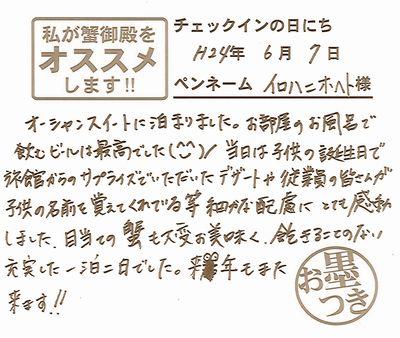 私が蟹御殿を
オススメ
します!!
チェックインの日にち
H24年 6月 7日
ペンネーム イロハニホヘト様
オーシャンスイートに泊まりました。お部屋のお風呂で
飲むビールは最高でした(^^)/ 当日は子供の誕生日で
旅館からのサプライズでいただいたデザートや従業員の皆さんが
子供の名前を覚えてくれてる等 細かな配慮に とても感動
しました。目当ての 蟹も大変お美味く、飽きることのない
充実した一泊二日でした。来年もまた
来ます!!
お墨
つき